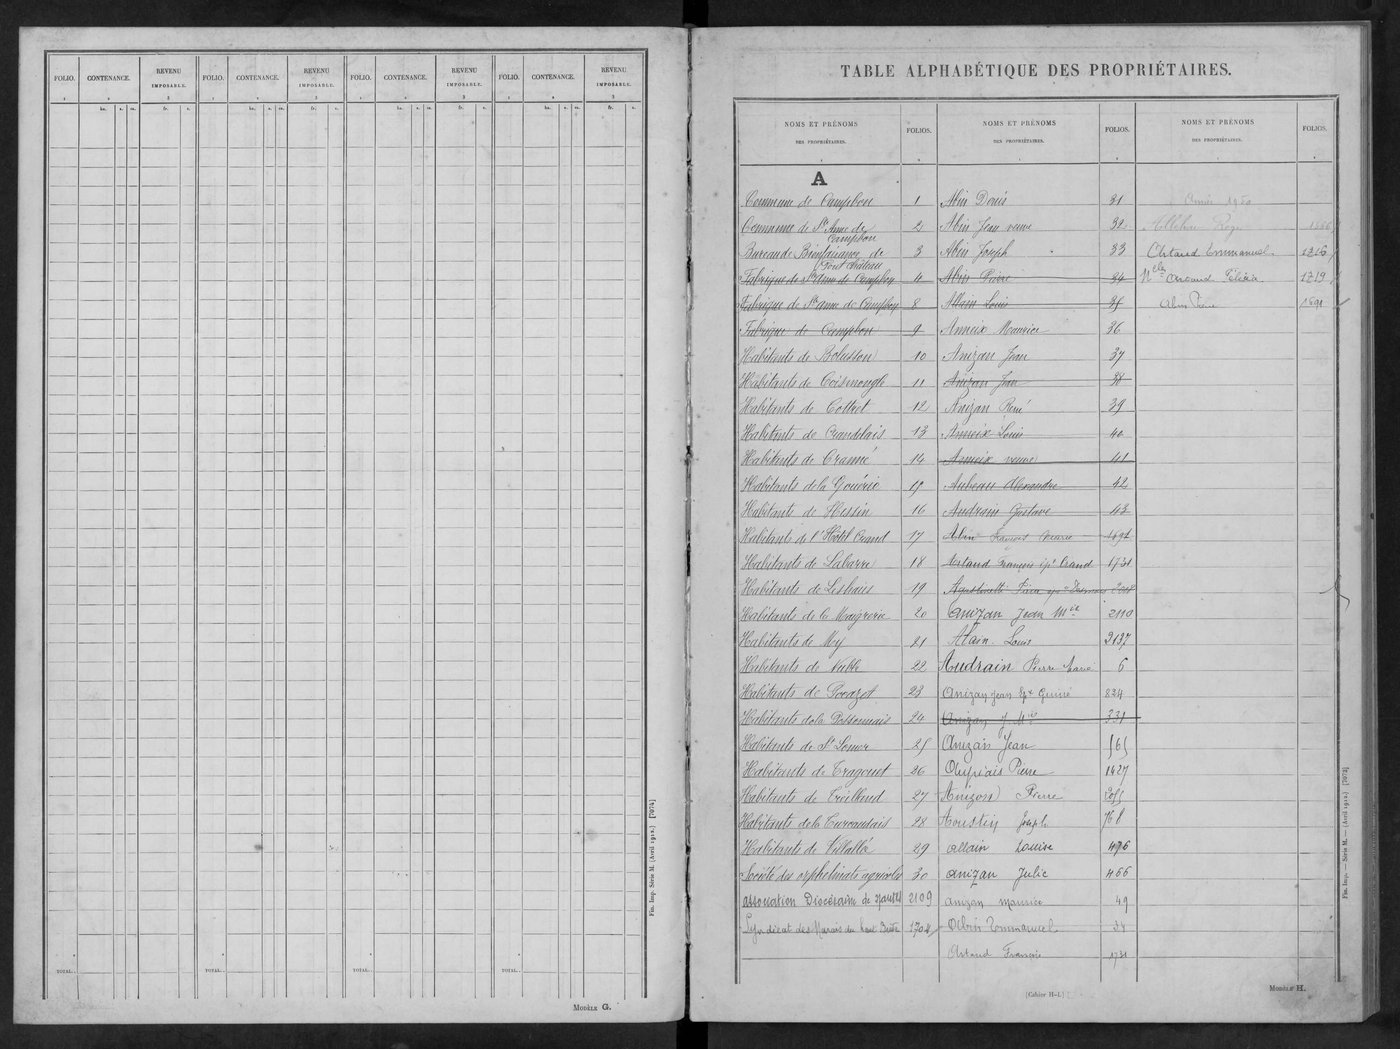 FOLIO. CONTENANCE. REVENU IMPOSABLE. FOLIO. CONTENANCE. REVENU IMPOSABLE. FOLIO. CONTENANCE. REVENU IMPOSABLE. FOLIO. CONTENANCE. REVENU IMPOSABLE.
1 2 3 1 2 3 1 2 3 1 2 3
ha. a. ca. fr. c. ha. a. ca. fr. c. ha. a. ca. fr. c. ha. a. ca. fr. c.
TOTAL.. TOTAL.. TOTAL.. TOTAL..
Fin. Imp. Série M. (Avril 1912.) [7074]
MODÈLE G.
TABLE ALPHABÉTIQUE DES PROPRIÉTAIRES.
NOMS ET PRÉNOMS DES PROPRIÉTAIRES. FOLIOS.
A
Commune de Campbon 1
Commune de Ste Anne de Campbon 2
Bureau de Bienfaisance de Pont Château 3
Fabrique de Ste Anne de Campbon 4
Fabrique de Ste anne de Campbon 8
Fabrique de Campbon 9
Habitants de Bolusson 10
Habitants de Coismongle 11
Habitants de Cottret 12
Habitants de Crandelais 13
Habitants de Cramé 14
Habitants de la Gouérie 15
Habitants de Hessin 16
Habitants de l'Hôtel Crand 17
Habitants de Labarre 18
Habitants de Leshaus 19
Habitants de la Maigrerie 20
Habitants de My 21
Habitants de 22
Habitants de 23
Habitants de la 24
Habitants de St 25
Habitants de Tragouet 26
Habitants de 27
Habitants de la 28
Habitants de 29
Société des orphelinats agricoles 30
association Diocésaine de Nantes 2109
Syndicat des Marais du haut Brivé 1704
NOMS ET PRÉNOMS DES PROPRIÉTAIRES. FOLIOS.
Abin Denis 31
Abin Jean veuve 32
Abin Joseph 33
Abin Pierre 34
Allain Louis 35
Anneix Maurice 36
Anizan Jean 37
Anizan Jean 38
Anizan René 39
Anneix Louis 40
Anneix veuve 41
Aubeau Alexandre 42
Audrain Gustave 43
Abin François
Artaud François ép. Crand 1731
anizan Jean Mie 2110
Alain Louis 2137
Audrain Pierre Marie 6
anizan Jean 824
Anizan J. Mie 331
Anizan Jean 565
Pierre 1427
Anizon Pierre
Aoustin Joseph
allain Louise 496
anizan Julie 466
anizan maurice 49
Abin Emmanuel 34
Artaud François 1731
NOMS ET PRÉNOMS DES PROPRIÉTAIRES. FOLIOS.
Année 1950
Artaud Emmanuel 1216
Artaud 1719
Abin Pierre 1691
(Cahier H-I.)
MODÈLE H.
Fin. Imp. — Série M. — (Avril 1912.) [7073]